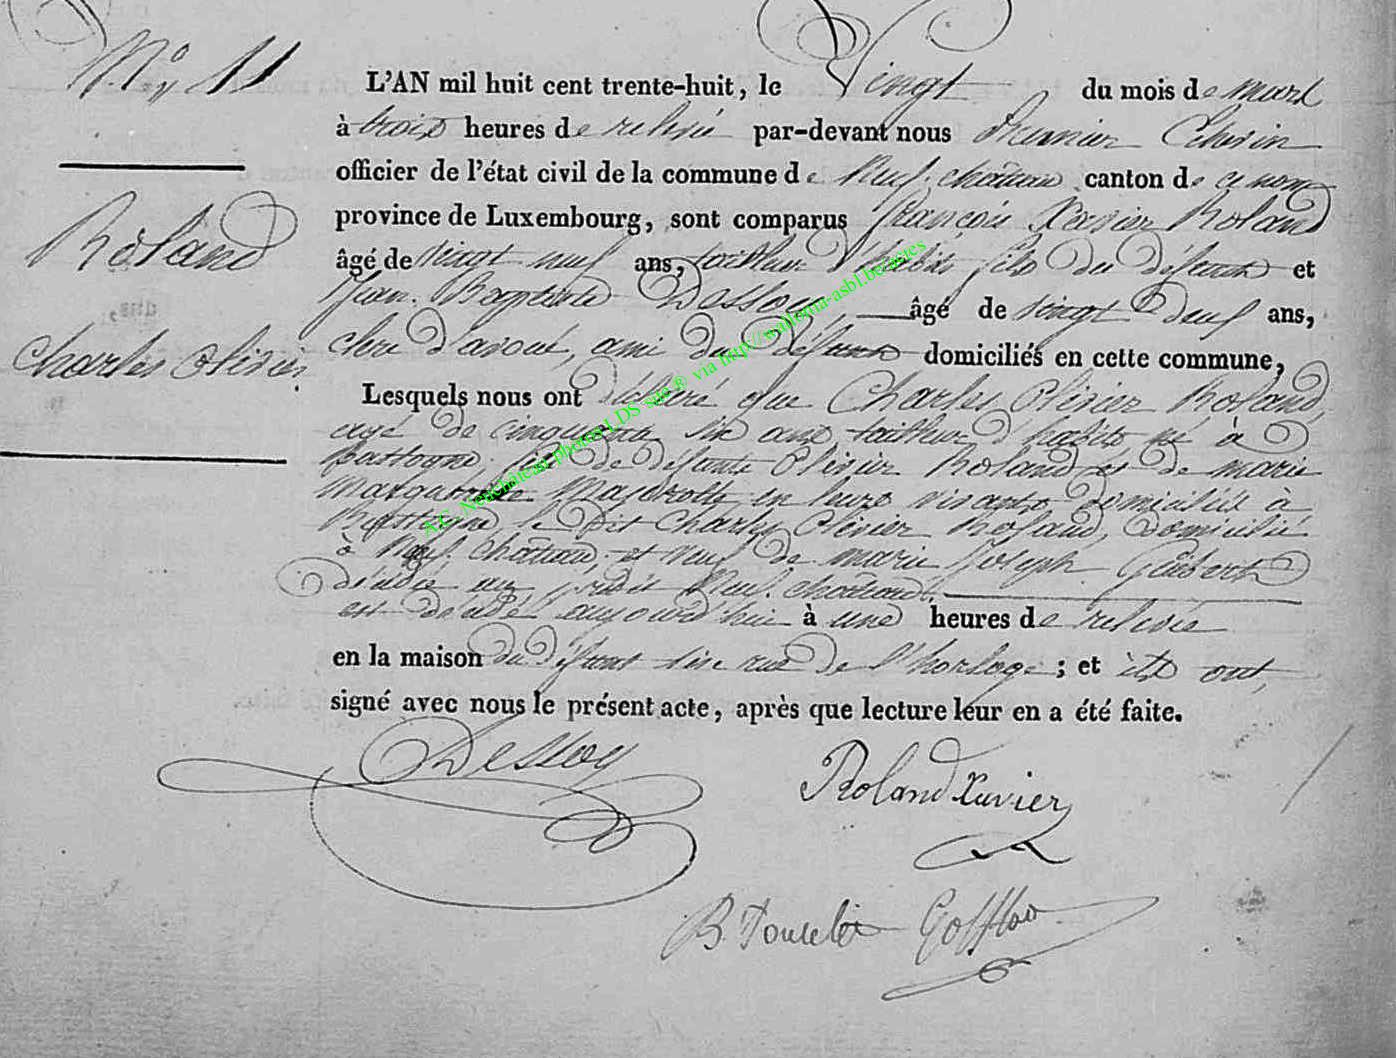 N.° 11
Roland
Charles Olivier
L'AN mil huit cent trente-huit, le Vingt du mois de mars
à trois heures de relevée par-devant nous premier Echevin
officier de l'état civil de la commune de Neufchâteau canton de ce nom
province de Luxembourg, sont comparus françois Xavier Roland
âgé de vingt neuf ans, tailleur d'habits fils du défunt et
Jean Baptiste Dessoy âgé de vingt deux ans,
clerc d'avoué, ami du défunt domiciliés en cette commune,
Lesquels nous ont déclaré que Charles Olivier Roland
agé de cinquante six ans tailleur d'habits né à
Bastogne, fils de défunts Olivier Roland et de marie
Marguerite en leurs vivants domiciliés à
Bastogne le dit Charles Olivier Roland, domicilié
à Neufchâteau, et veuf de marie Joseph
Neufchâteau.
est décédé aujourd'hui à une heures de relevée
en la maison du défunt sise rue de l'horloge ; et ils ont
signé avec nous le présent acte, après que lecture leur en a été faite.
Dessoy
Roland Xavier
B.
A.C. Neufchâteau photos LDS sur ® via http://wallonia-asbl.be/actes